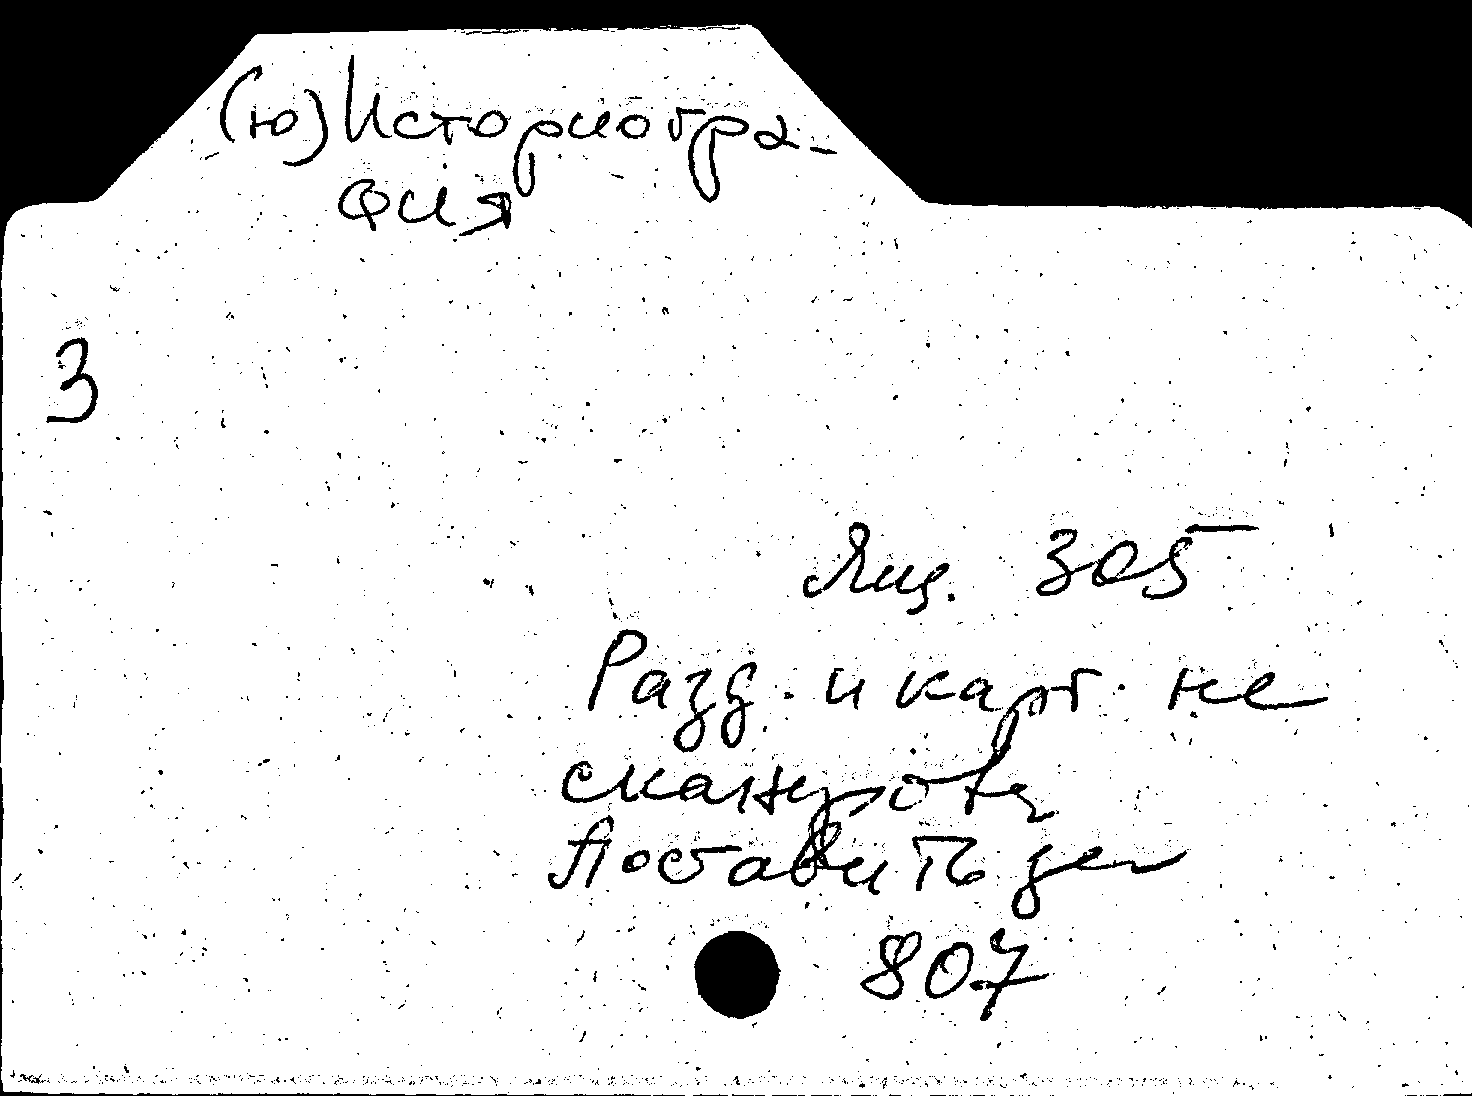 (ю) Историогра-
фия
3
Ящ. 305
Разд. и карт. не
сканиров
Поставить
807